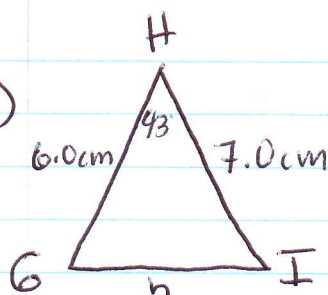 H
)
43°
6.0cm 7.0cm
G I
h